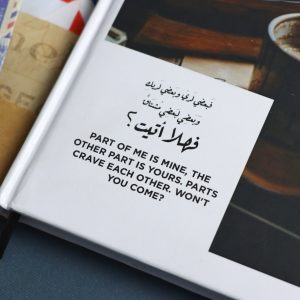 فبعضي لديّ وبعضي لديك
وبعضي لبعضي مشتاقٌ
فهلا أتيت؟
PART OF ME IS MINE, THE
OTHER PART IS YOURS. PARTS
CRAVE EACH OTHER. WON'T
YOU COME?